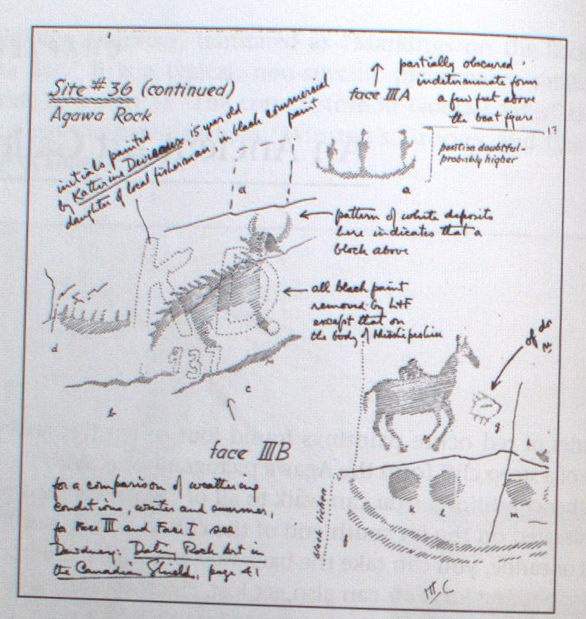 Site #36 (continued)
Agawa Rock
initials painted
by Katherine Devereaux 15 year old
daughter of local fisherman, in black commercial
paint
partially obscured
indeterminate form
a few feet above
the boat figure
face IIIA
position doubtful-
probably higher
a
a
pattern of white deposits
here indicates that a
block above
all black paint
removed by L+F
except that on
the body of Misshipeshu
KD
1937
d
c
b
face IIIB
for a comparison of weathering
conditions, winter and summer,
for Face III and Face I see
Dewdney: Dating Rock Art in
the Canadian Shield, page 41
g
k
l
m
III/C